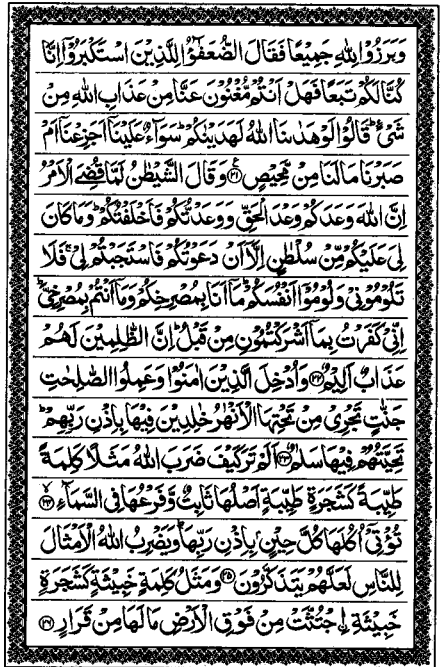 وَبَرَزُوْا لِلّٰهِ جَمِيْعًا فَقَالَ الضُّعَفٰٓؤُا لِلَّذِيْنَ اسْتَكْبَرُوْٓا اِنَّا
كُنَّا لَكُمْ تَبَعًا فَهَلْ اَنْتُمْ مُّغْنُوْنَ عَنَّا مِنْ عَذَابِ اللّٰهِ مِنْ
شَيْءٍ ؕ قَالُوْا لَوْ هَدٰىنَا اللّٰهُ لَهَدَيْنٰكُمْ ؕ سَوَآءٌ عَلَيْنَاۤ اَجَزِعْنَاۤ اَمْ
صَبَرْنَا مَا لَنَا مِنْ مَّحِيْصٍ ﴿۲۱﴾ وَقَالَ الشَّيْطٰنُ لَمَّا قُضِيَ الْاَمْرُ
اِنَّ اللّٰهَ وَعَدَكُمْ وَعْدَ الْحَقِّ وَوَعَدْتُّكُمْ فَاَخْلَفْتُكُمْ ؕ وَمَا كَانَ
لِيَ عَلَيْكُمْ مِّنْ سُلْطٰنٍ اِلَّاۤ اَنْ دَعَوْتُكُمْ فَاسْتَجَبْتُمْ لِيْ ۚ فَلَا
تَلُوْمُوْنِيْ وَلُوْمُوْۤا اَنْفُسَكُمْ ؕ مَاۤ اَنَا بِمُصْرِخِكُمْ وَمَاۤ اَنْتُمْ بِمُصْرِخِيَّ ؕ
اِنِّيْ كَفَرْتُ بِمَاۤ اَشْرَكْتُمُوْنِ مِنْ قَبْلُ ؕ اِنَّ الظّٰلِمِيْنَ لَهُمْ
عَذَابٌ اَلِيْمٌ ﴿۲۲﴾ وَاُدْخِلَ الَّذِيْنَ اٰمَنُوْا وَعَمِلُوا الصّٰلِحٰتِ
جَنّٰتٍ تَجْرِيْ مِنْ تَحْتِهَا الْاَنْهٰرُ خٰلِدِيْنَ فِيْهَا بِاِذْنِ رَبِّهِمْ ؕ
تَحِيَّتُهُمْ فِيْهَا سَلٰمٌ ﴿۲۳﴾ اَلَمْ تَرَ كَيْفَ ضَرَبَ اللّٰهُ مَثَلًا كَلِمَةً
طَيِّبَةً كَشَجَرَةٍ طَيِّبَةٍ اَصْلُهَا ثَابِتٌ وَّفَرْعُهَا فِي السَّمَآءِ ﴿۲۴﴾
تُؤْتِيْۤ اُكُلَهَا كُلَّ حِيْنٍۭ بِاِذْنِ رَبِّهَا ؕ وَيَضْرِبُ اللّٰهُ الْاَمْثَالَ
لِلنَّاسِ لَعَلَّهُمْ يَتَذَكَّرُوْنَ ﴿۲۵﴾ وَمَثَلُ كَلِمَةٍ خَبِيْثَةٍ كَشَجَرَةٍ
خَبِيْثَةِ ۣاجْتُثَّتْ مِنْ فَوْقِ الْاَرْضِ مَا لَهَا مِنْ قَرَارٍ ﴿۲۶﴾